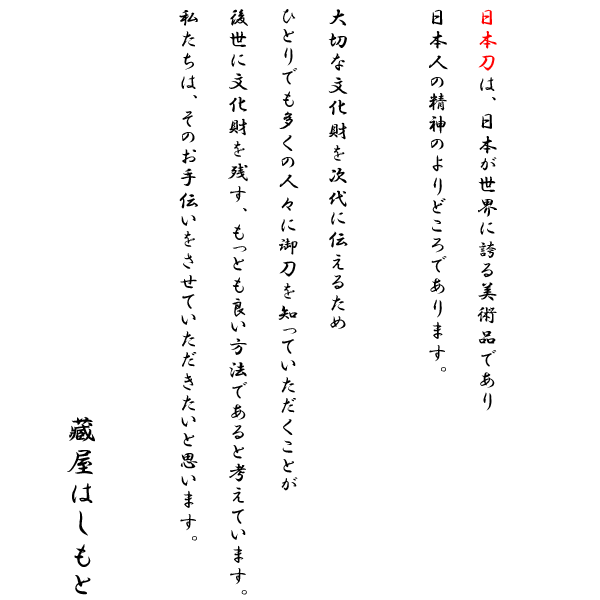 日本刀は、日本が世界に誇る美術品であり
日本人の精神のよりどころであります。
大切な文化財を次代に伝えるため
ひとりでも多くの人々に御刀を知っていただくことが
後世に文化財を残す、もっとも良い方法であると考えています。
私たちは、そのお手伝いをさせていただきたいと思います。
蔵屋はしもと